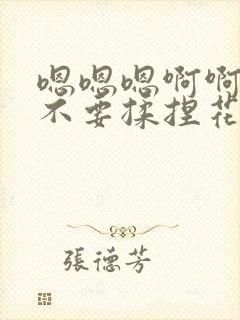 嗯嗯嗯啊啊
不要揉捏花
張德芳